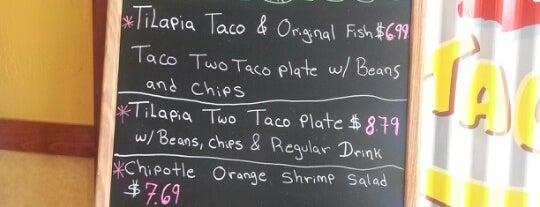 *TiLapia Taco & Original Fish $6.99
Taco Two Taco plate w/ Beans
and Chips
*TiLapia Two Taco Plate $8.79
w/Beans, chips & Regular Drink
*Chipotle Orange Shrimp Salad
$7.69